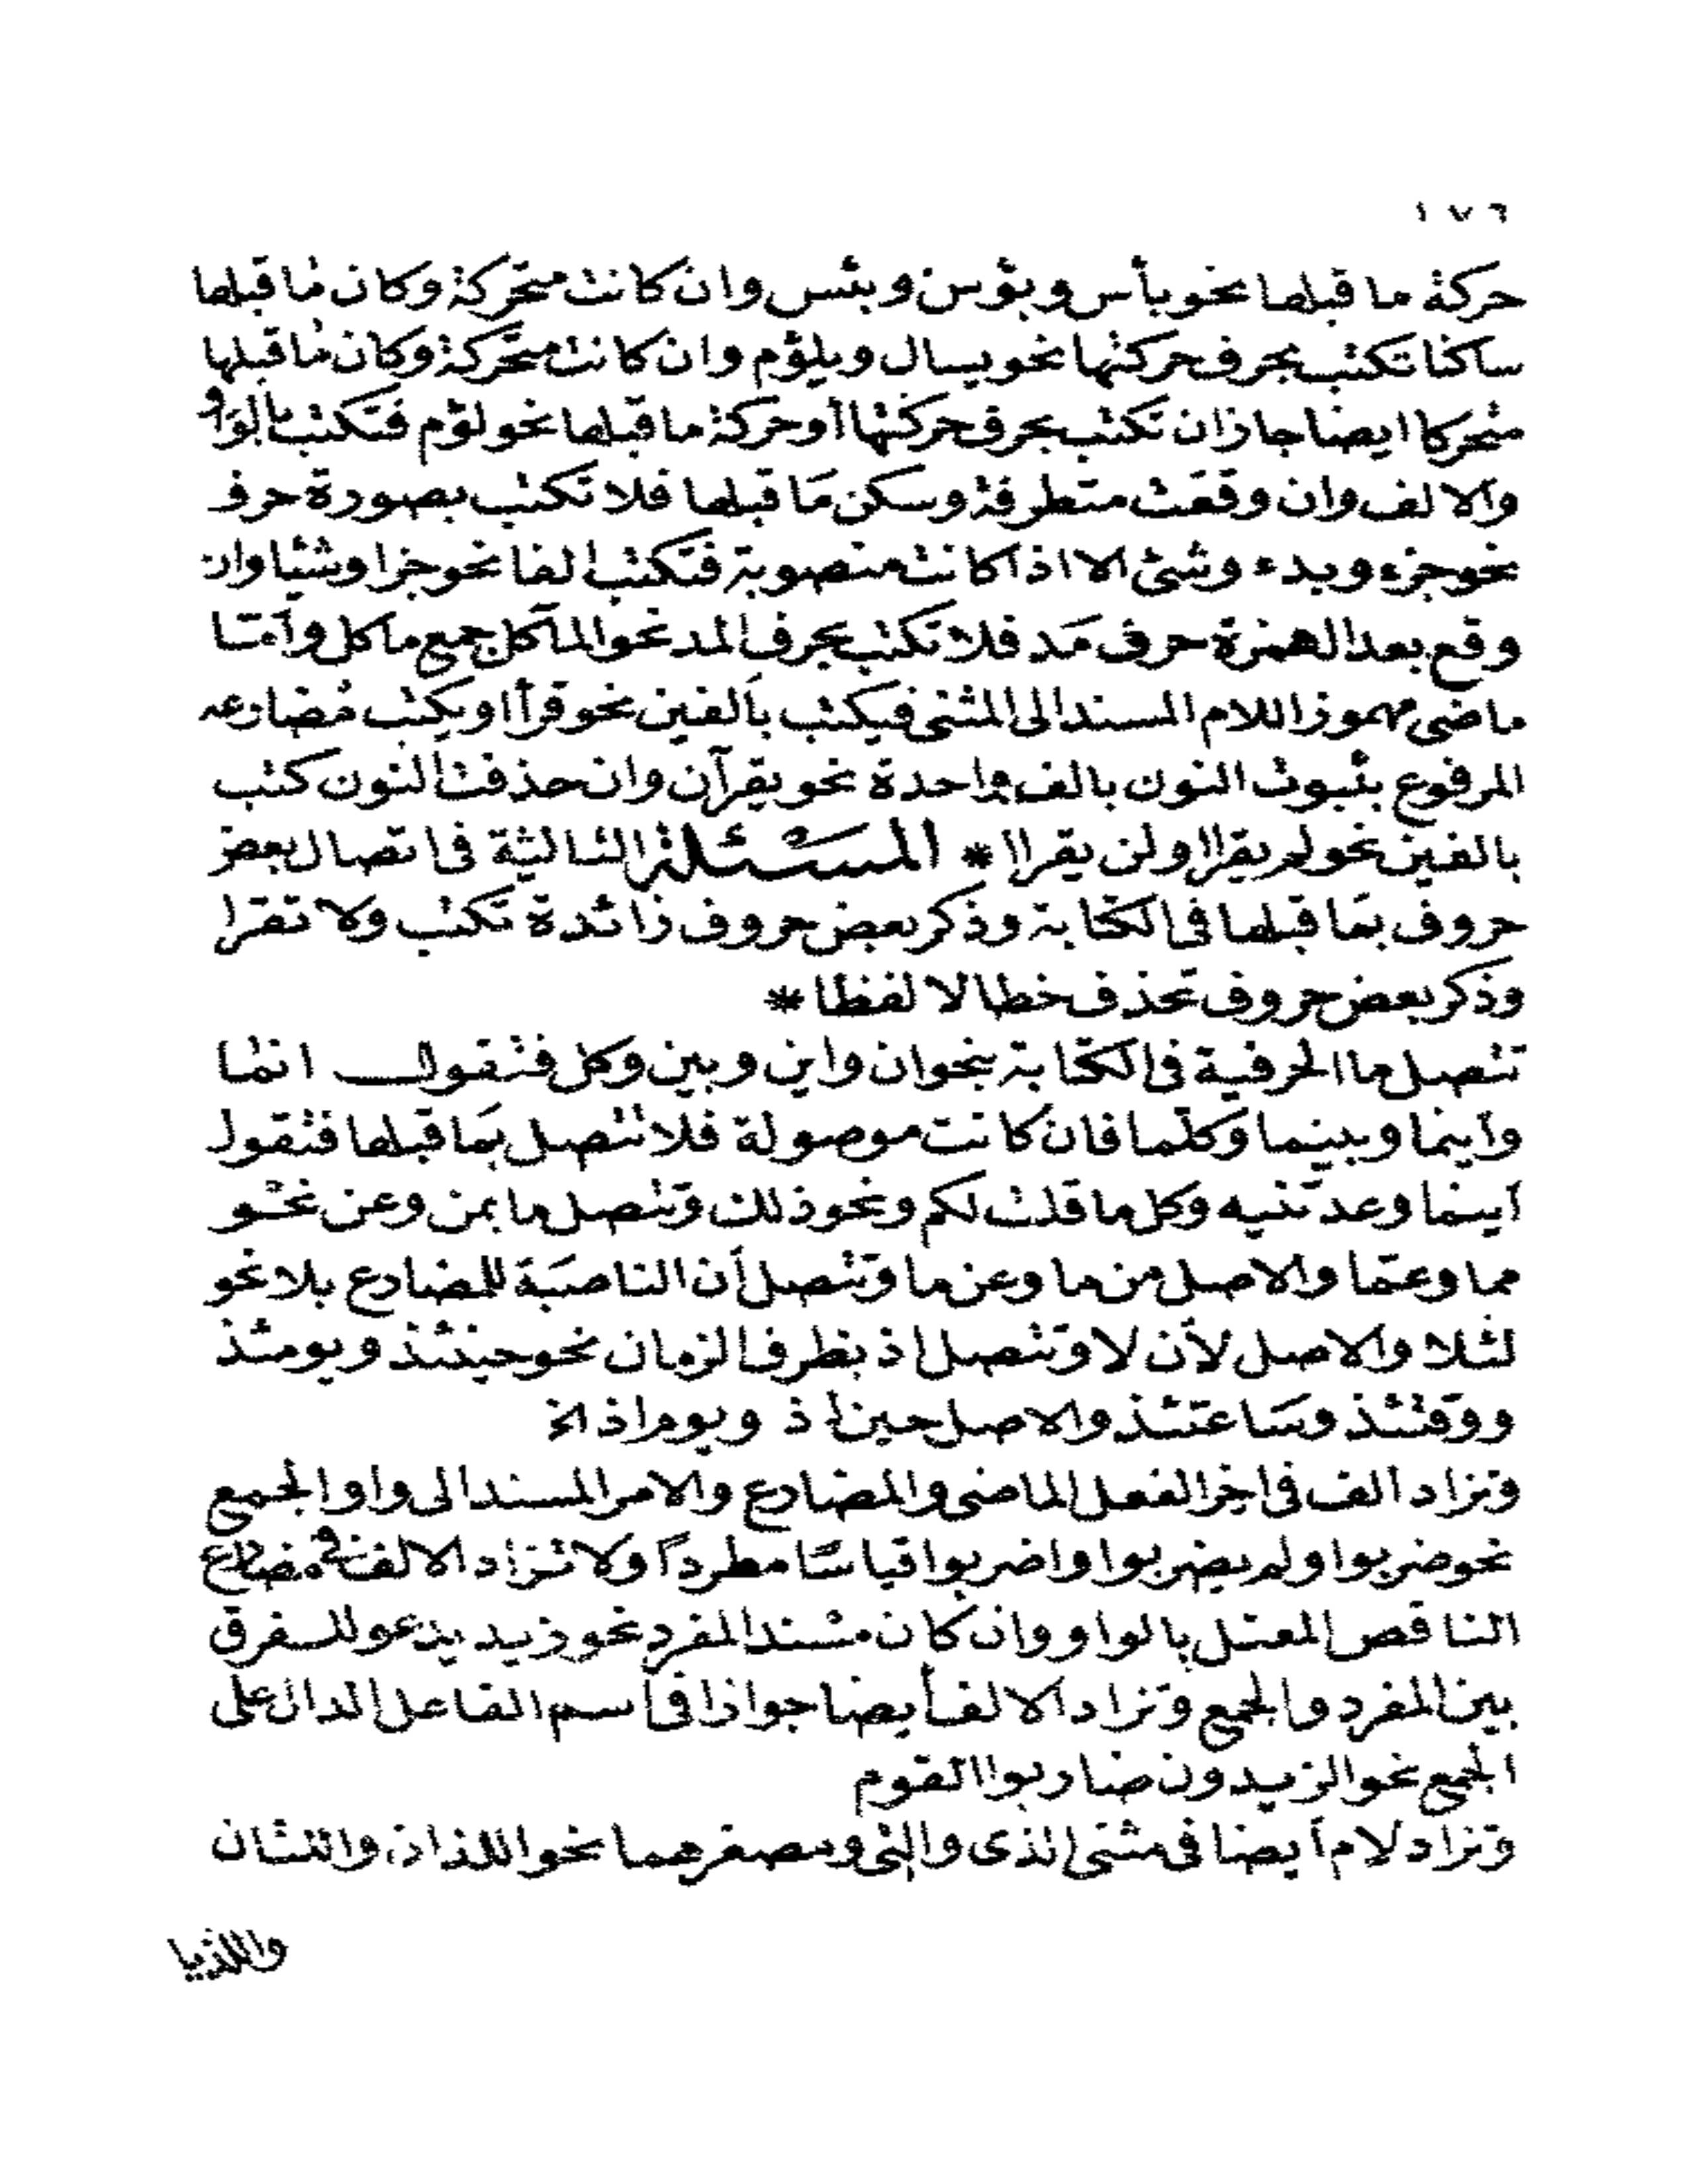 ١٧٦
حركة ما قبلها نحو بأس وبؤس وبئس وان كانت متحركة وكان ما قبلها
ساكنا تكتب بحرف حركتها نحو يسال ويلؤم وان كانت متحركة وكان ما قبلها
متحركا ايضا جاز ان تكتب بحرف حركتها أو حركة ما قبلها نحو لؤم فتكتب بالواو
والالف وان وقعت متطرفة وسكن ما قبلها فلا تكتب بصورة حرف
نحو جزء وبدء وشئ الا اذا كانت منصوبة فتكتب الفا نحو جزا وشيئا وان
وقع بعد الهمزة حرف مد فلا تكتب بحرف المد نحو المآكل جمع ماكل وأمتا
ماضى مهموز اللام المسند الى المثنى فيكتب بألفين نحو قرأا ويكتب مضارعه
المرفوع بثبوت النون بالف واحدة نحو يقرآن وان حذفت النون كتب
بالفين نحو لم يقراا ولن يقراا * المسئلة الثالثة فى اتصال بعض
حروف بما قبلها فى الكتابة وذكر بعض حروف زائدة تكتب ولا تقرا
وذكر بعض حروف تحذف خطا لا لفظا *
تتصل ما الحرفية فى الكتابة بنحو ان واين وبين وكل فتقول انما
وأينما وبينما وكلما فان كانت موصولة فلا تتصل بما قبلها فتقول
أين ما وعدتنيه وكل ما قلت لكم ونحو ذلك وتتصل ما بمن وعن نحو
مما وعما والاصل من ما وعن ما وتتصل أن الناصبة للمضارع بلا نحو
لئلا والاصل لأن لا وتتصل اذ بظرف الزمان نحو حينئذ ويومئذ
ووقتئذ وساعتئذ والاصل حين اذ ويوم اذ الخ
وتزاد ألف فى اخر الفعل الماضى والمضارع والامر المسند الى واو الجمع
نحو ضربوا ولم يضربوا واضربوا قياسا مطردا ولا تزاد الالف فى مضارع
الناقص المعتل بالواو وان كان مسند المفرد نحو زيد يدعو للفرق
بين المفرد والجمع وتزاد الالف أيضا جوازا فى أسم الفاعل الدال على
الجمع نحو الزيدون ضاربوا القوم
وتزاد لام أيضا فى مثنى الذى والتى ومصغرهما نحو اللذان واللتان
واللذيا